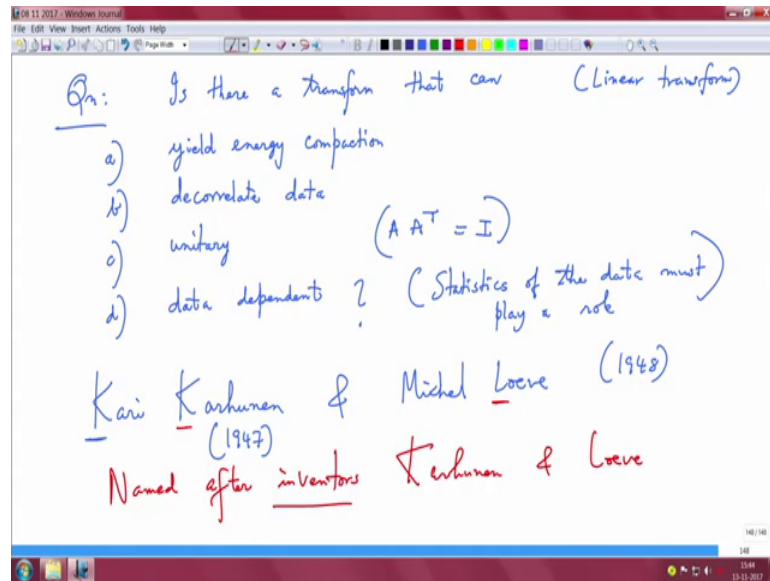 08 11 2017 - Windows Journal
File Edit View Insert Actions Tools Help
Page Width
Qn: Is there a transform that can (Linear transform)
a) yield energy compaction
b) decorrelate data
c) unitary (A A^T = I)
d) data dependent ? (Statistics of the data must play a role)
Kari Karhunen & Michel Loeve (1948)
(1947)
Named after inventors Karhunen & Loeve
148/148
148
15:44
13-11-2017